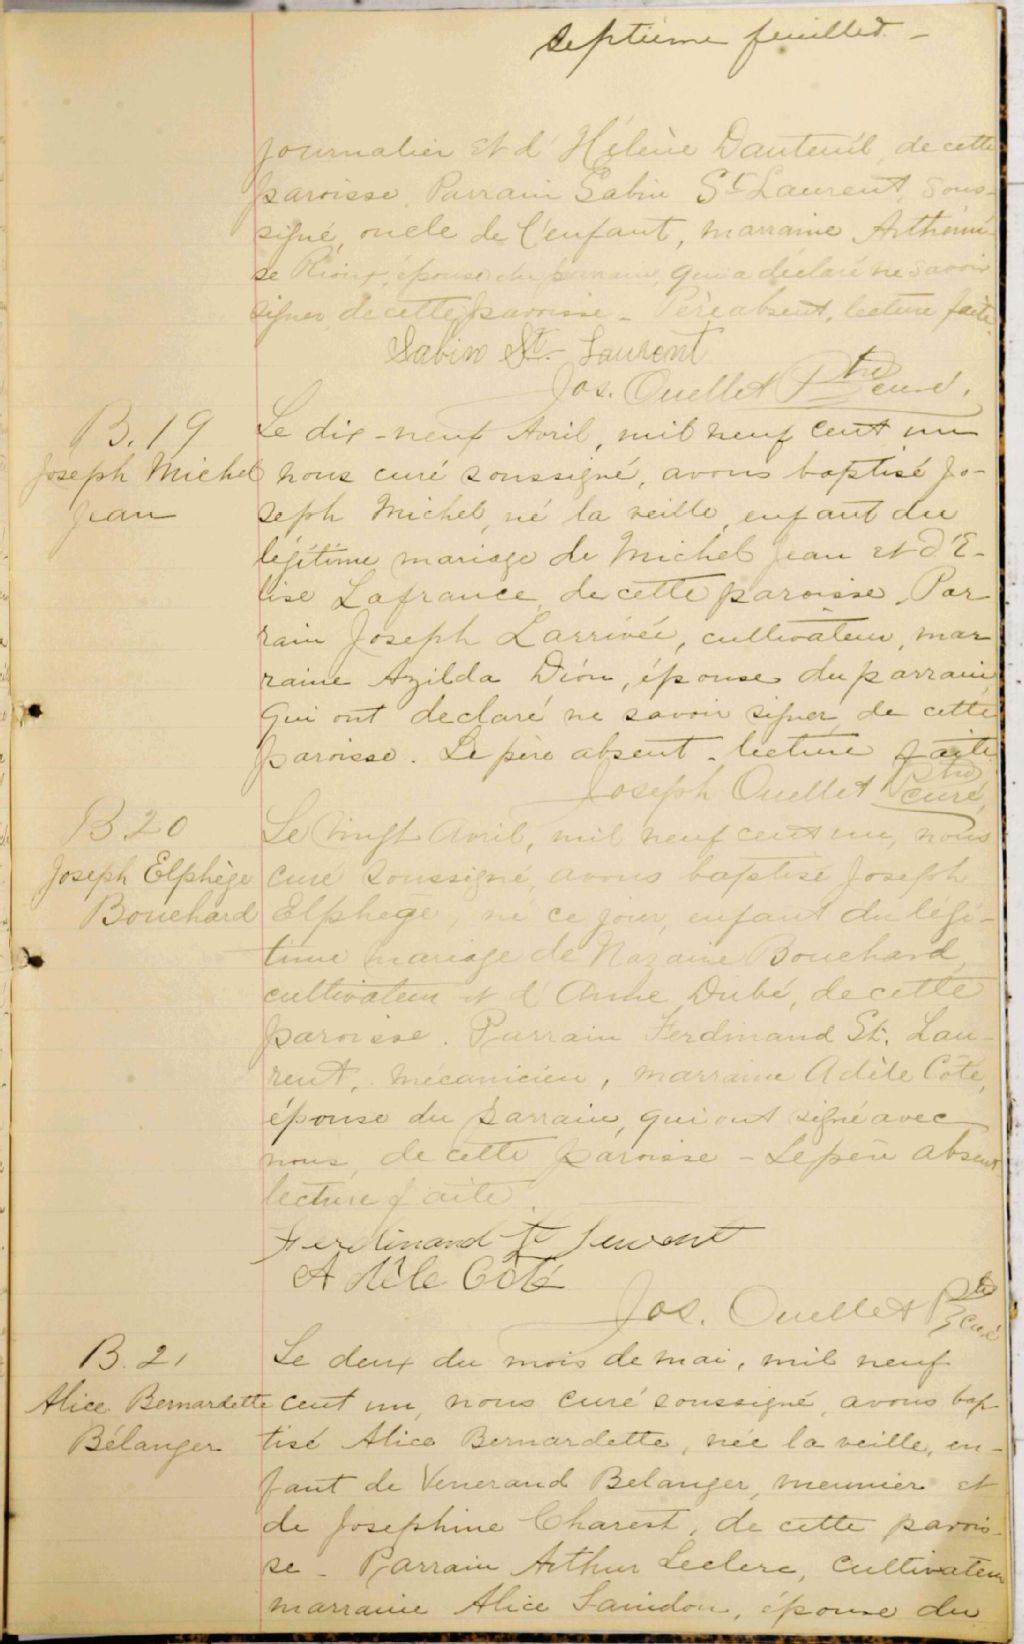 septième feuillet -
journalier et d'Hélène Dauteuil, de cette
paroisse. Parrain Sabin St Laurent, sous-
signé, oncle de l'enfant, marraine Arthémi-
se Rioux, épouse du parrain, qui a déclaré ne savoir
signer, de cette paroisse - Père absent, lecture faite.
Sabin St. Laurent
Jos. Ouellet Ptre curé.
B. 19
Joseph Michel
Jean
Le dix-neuf Avril, mil neuf cent un
nous curé soussigné, avons baptisé Jo-
seph Michel, né la veille, enfant du
légitime mariage de Michel Jean et d'E-
lise Lafrance, de cette paroisse. Par
rain Joseph Larrivée, cultivateur, mar
raine Azilda Dion, épouse du parrain,
qui ont declaré ne savoir signer, de cette
paroisse. Le père absent. lecture faite
Joseph Ouellet Ptre curé,
B 20
Joseph Elphège
Bouchard
Le vingt Avril, mil neuf cent un, nous
curé soussigné, avons baptisé Joseph
Elphege, né ce jour, enfant du légi-
time mariage de Nazaire Bouchard,
cultivateur et d'Anne Dubé, de cette
paroisse. Parrain Ferdinand St. Lau-
rent, mécanicien, marraine Adèle Côté,
épouse du parrain, qui ont signé avec
nous, de cette paroisse - Le père absent
lecture faite.
Ferdinand St Laurent
Adèle Côté
Jos. Ouellet Ptre curé
B. 21
Alice Bernardette
Bélanger
Le deux du mois de mai, mil neuf
cent un, nous curé soussigné, avons bap-
tisé Alice Bernardette, née la veille, en-
fant de Venerand Belanger, meunier et
de Josephine Charest, de cette parois-
se - Parrain Arthur Leclerc, cultivateur
marraine Alice Saindon, épouse du